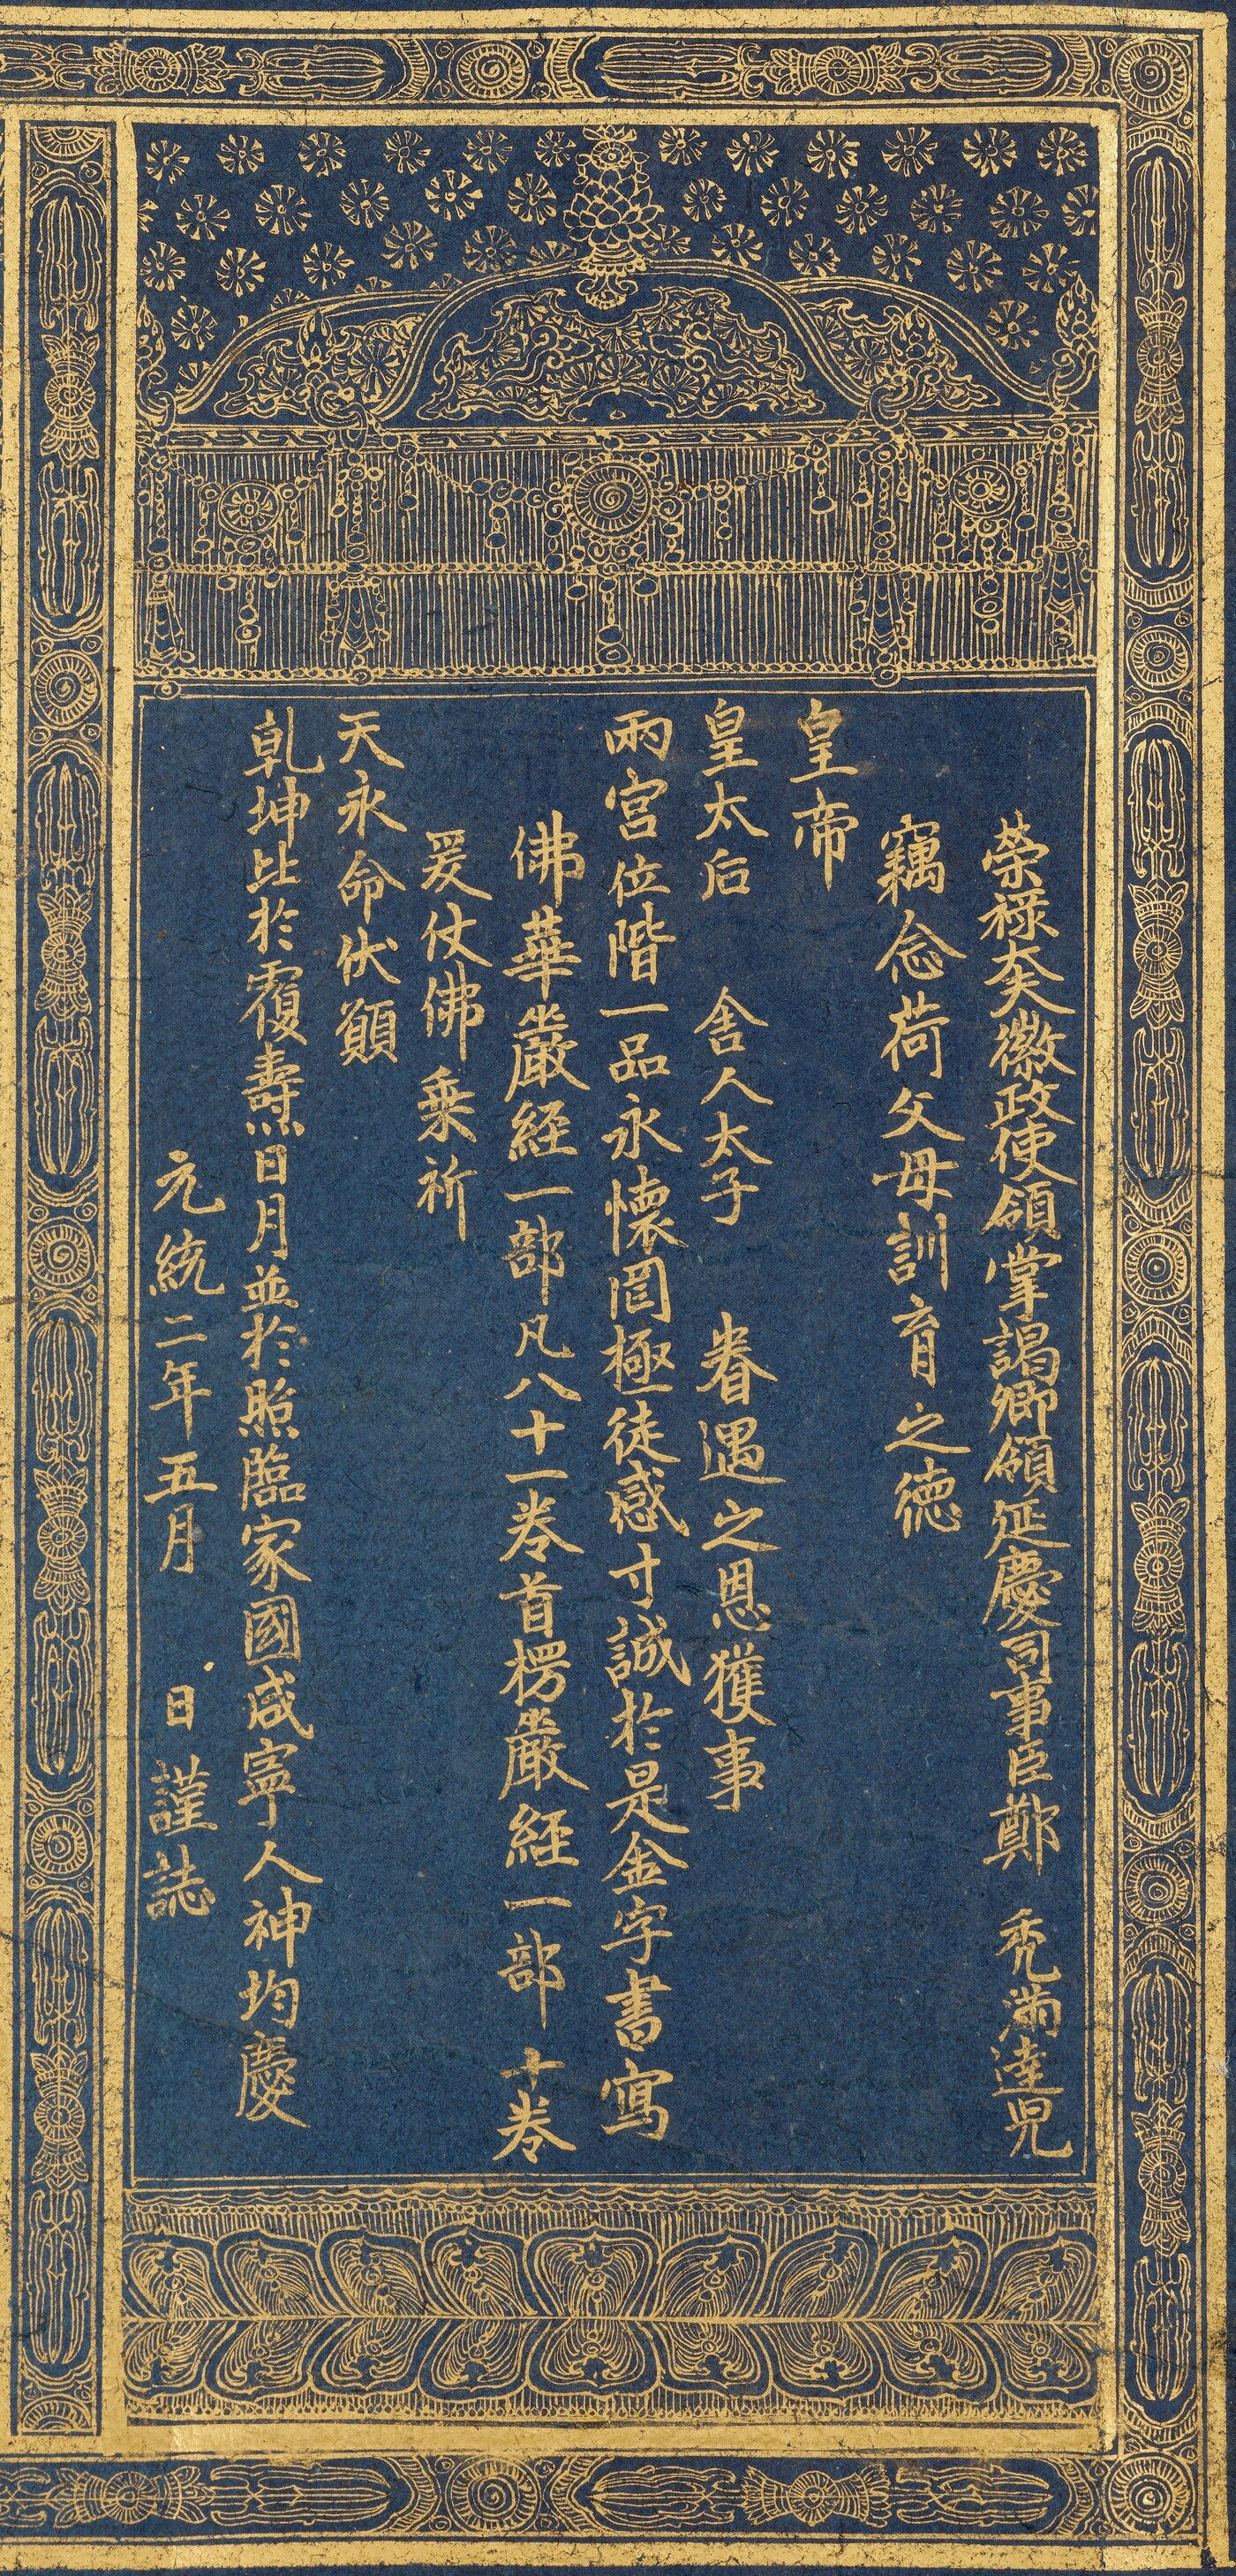 榮祿大夫徽政使領掌謁卿領延慶司事臣鄭 禿滿達児
竊念荷父母訓育之德
皇帝
皇太后 舍人太子 眷遇之恩獲事
兩宮位階一品永懷罔極徒感寸誠於是金字書寫
佛華嚴経一部凡八十一卷首楞嚴経一部 十卷
爰仗佛乗祈
天永命伏願
乹坤比於覆壽日月並於照臨家國咸寧人神均慶
元統二年五月 日謹誌